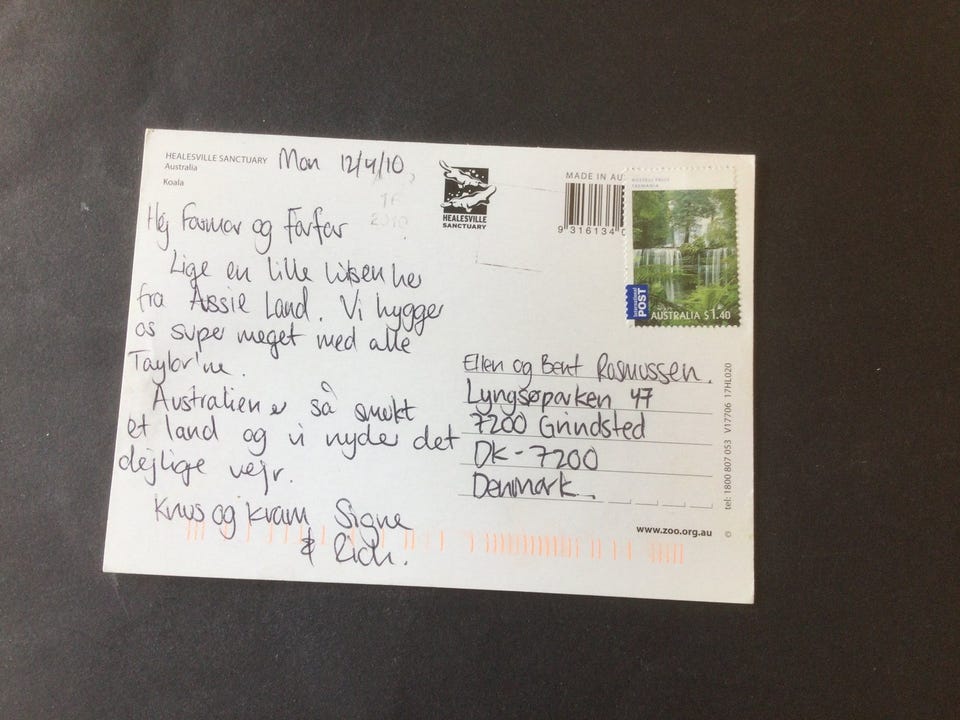 HEALESVILLE SANCTUARY
Australia
Koala
Mon 12/4/10,
16
2010
Hej Farmor og Farfar
Lige en lille hilsen her
fra Assie Land. Vi hygger
os super meget med alle
Taylor'ne.
Australien er så smukt
et land og vi nyder det
dejlige vejr.
Knus og kram Signe
& Rich.
HEALESVILLE
SANCTUARY
MADE IN AU
9 316134 0
RUSSELL FALLS
TASMANIA
International
POST
AUSTRALIA $1.40
Ellen og Bent Rasmussen.
Lyngsøparken 47
7200 Grindsted
DK-7200
Denmark.
www.zoo.org.au ©
tel: 1800 807 053 V17706 17HL020